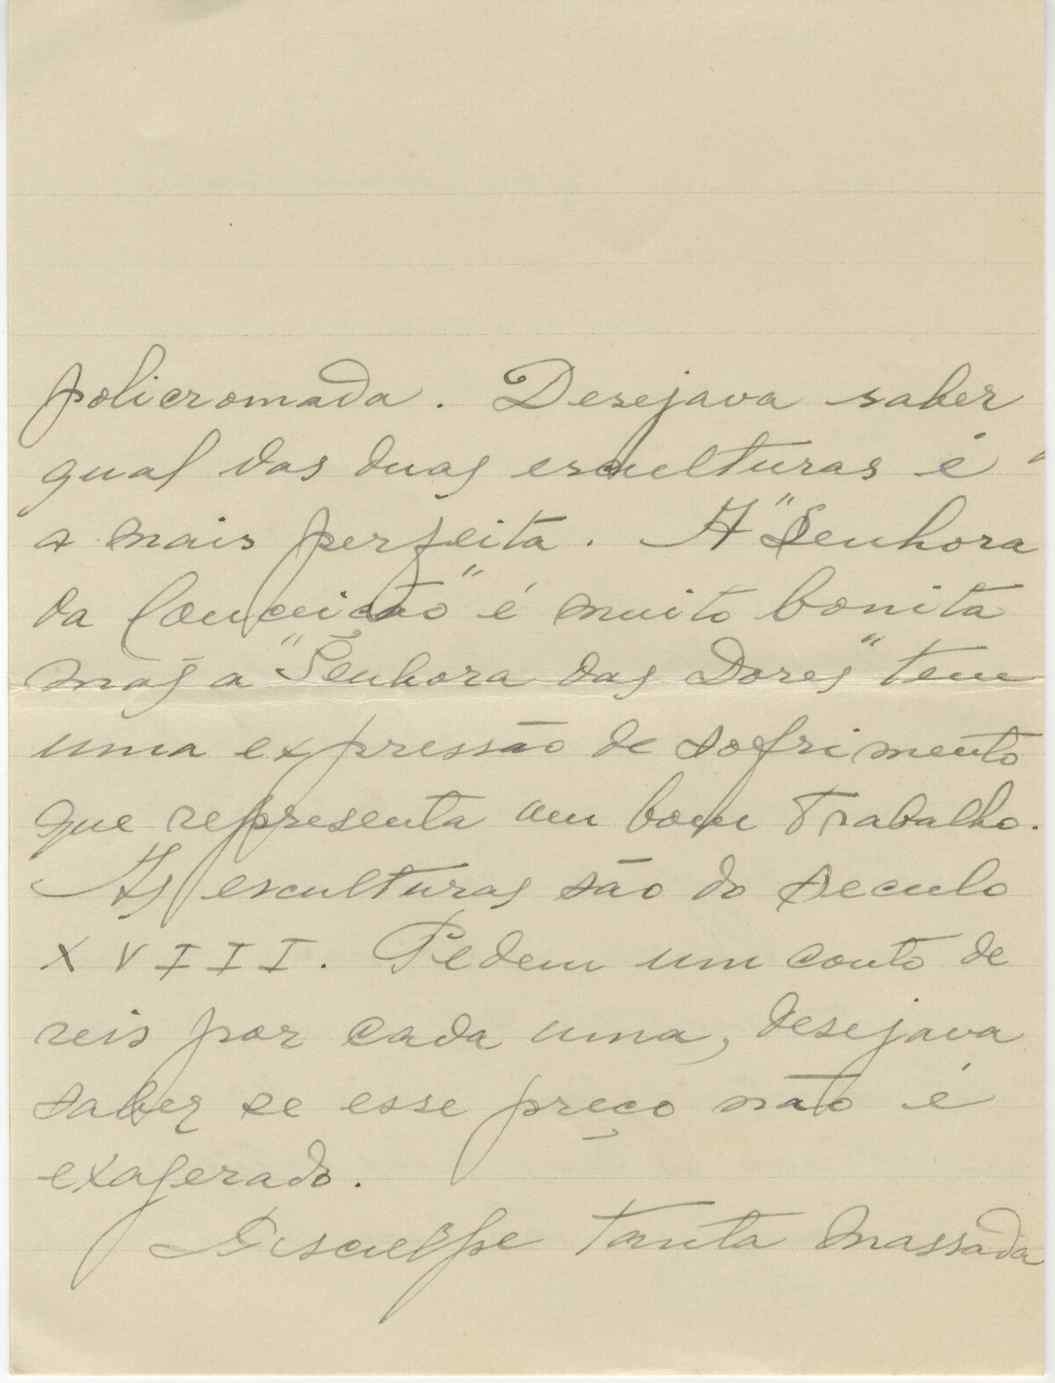 policromada. Desejava saber
qual das duas esculturas é
a mais perfeita. A "Senhora
da Conceição" é muito bonita
mas a "Senhora das Dores" tem
uma expressão de sofrimento
que representa um bom trabalho.
As esculturas são do seculo
XVIII. Pedem um conto de
reis por cada uma, desejava
saber se esse preço não é
exagerado.
Desculpe tanta massada